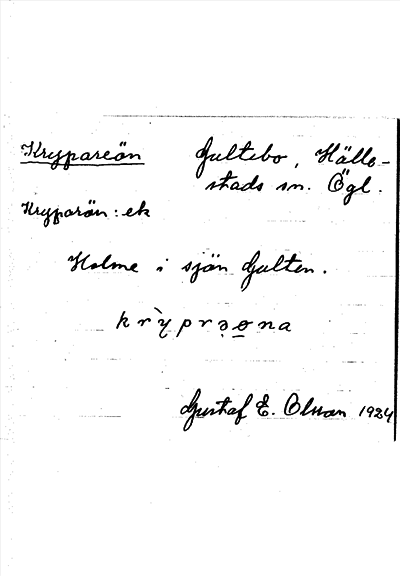 Krypareön Gultebo, Hälle-
stads sn. Ögl.
Kryparön: ek
Holme i sjön Gulten.
krỳprə̣ø̲na
Gustaf E. Olsson 1934